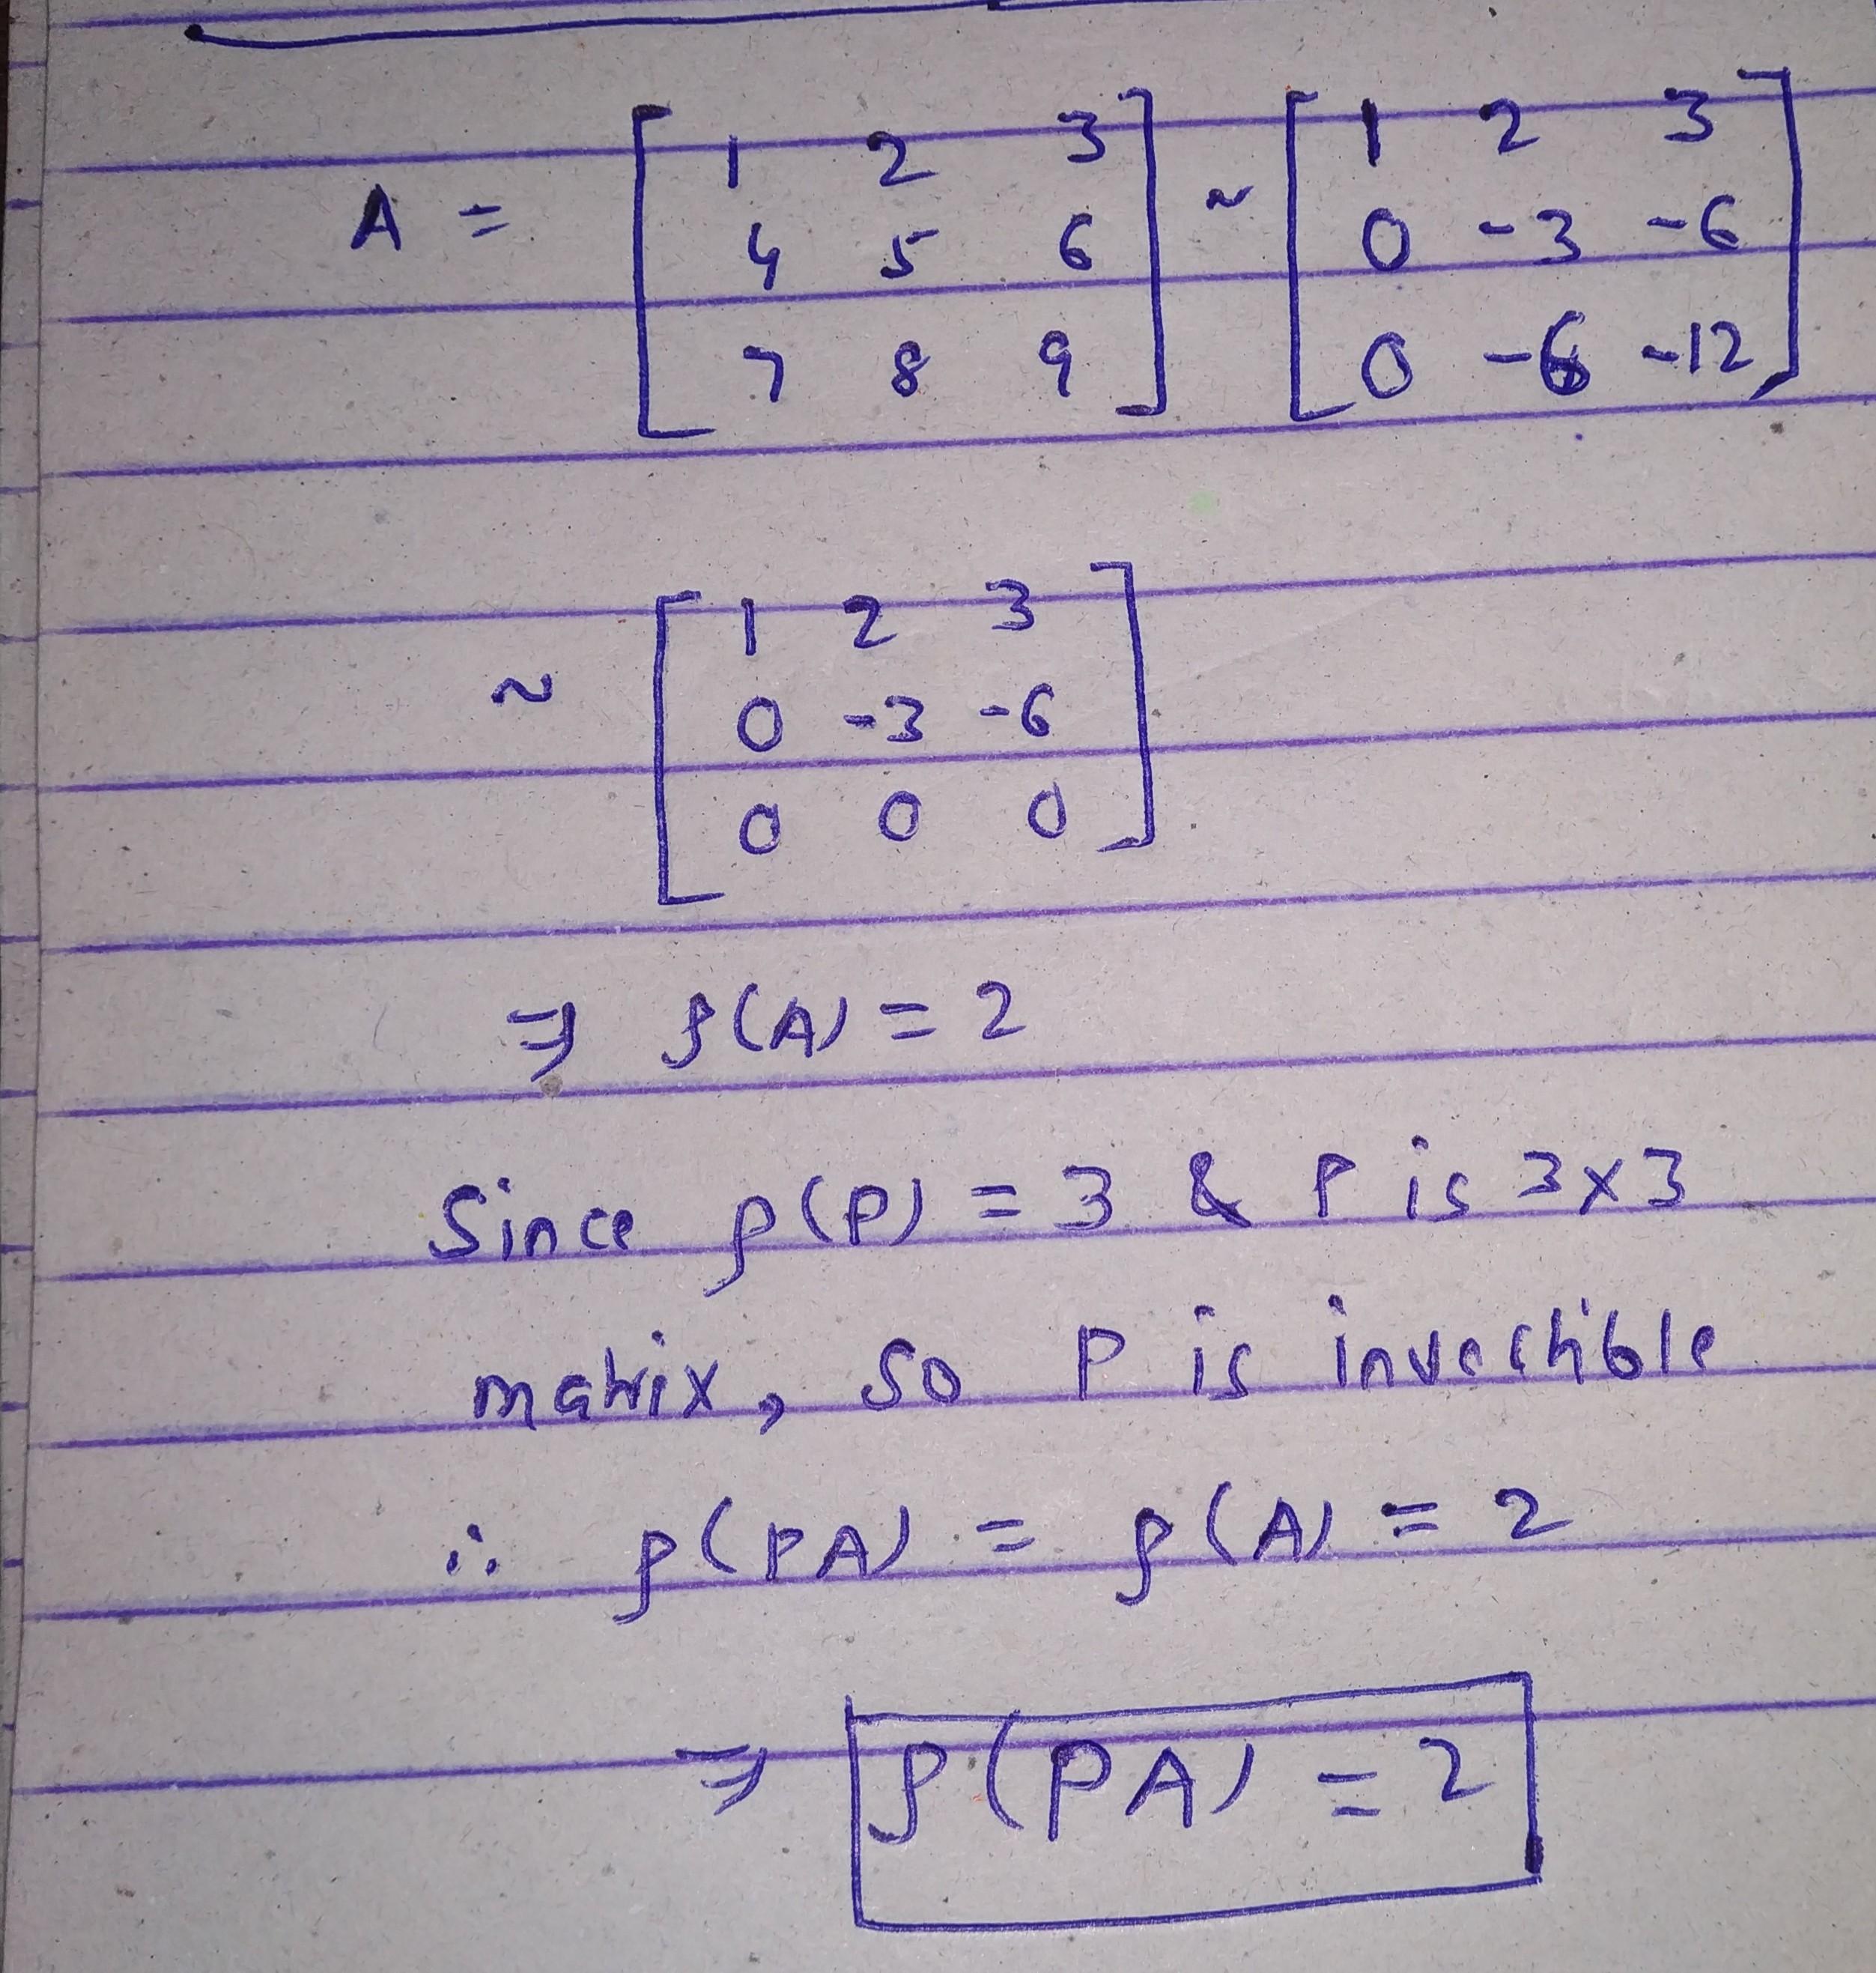 A = [ 1 2 3 ; 4 5 6 ; 7 8 9 ] ~ [ 1 2 3 ; 0 -3 -6 ; 0 -6 -12 ]
~ [ 1 2 3 ; 0 -3 -6 ; 0 0 0 ]
⇒ ρ(A) = 2
Since ρ(P) = 3 & P is 3x3
matrix, so P is invertible
∴ ρ(PA) = ρ(A) = 2
⇒ ρ(PA) = 2